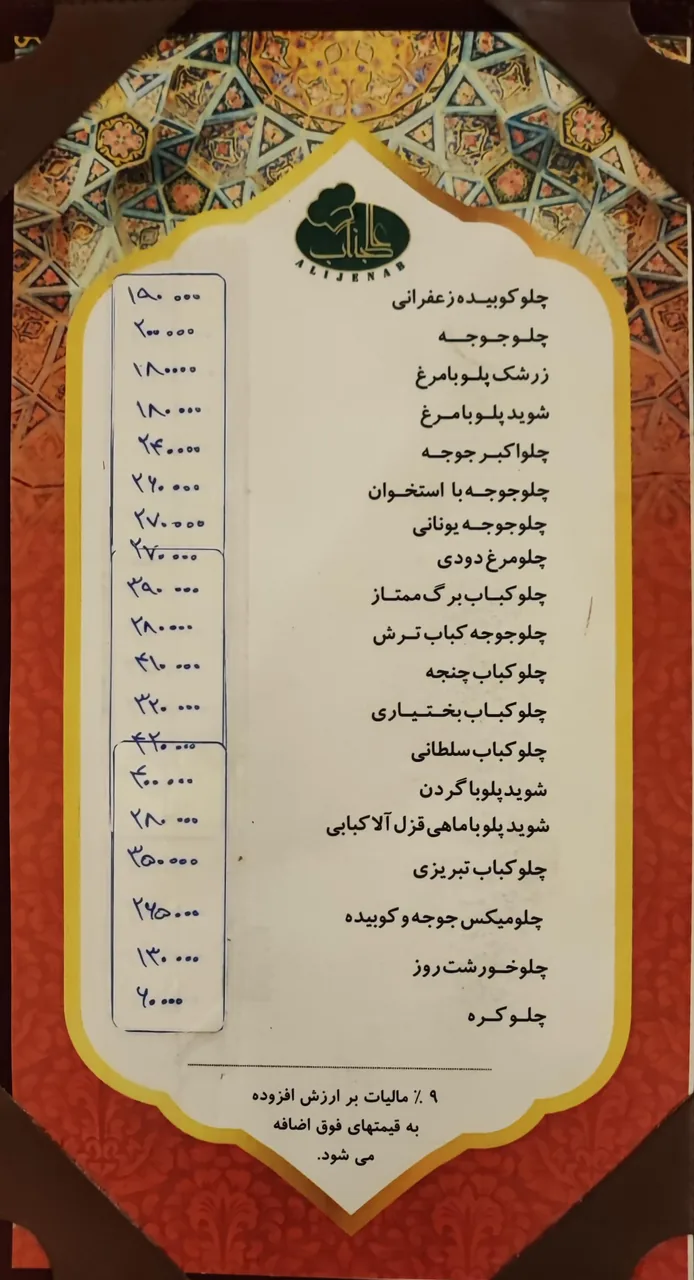 عالیجناب
ALIJENAB
چلو کوبیده زعفرانی ۱۹۰ ۰۰۰
چلو جوجه ۲۰۰ ۰۰۰
زرشک پلو با مرغ ۱۸۰۰۰۰
شوید پلو با مرغ ۱۸۰ ۰۰۰
چلو اکبر جوجه ۲۴۰۰۰۰
چلو جوجه با استخوان ۲۶۰ ۰۰۰
چلو جوجه یونانی ۲۷۰۰۰۰
چلو مرغ دودی ۲۷۰ ۰۰۰
چلو کباب برگ ممتاز ۳۹۰ ۰۰۰
چلو جوجه کباب ترش ۲۸۰۰۰۰
چلو کباب چنجه ۴۱۰ ۰۰۰
چلو کباب بختیاری ۳۲۰ ۰۰۰
چلو کباب سلطانی ۴۲۰ ۰۰۰
شوید پلو با گردن ۴۰۰ ۰۰۰
شوید پلو با ماهی قزل آلا کبابی ۲۸۰ ۰۰۰
چلو کباب تبریزی ۳۵۰۰۰۰
چلو میکس جوجه و کوبیده ۲۶۵۰۰۰
چلو خورشت روز ۱۳۰ ۰۰۰
چلو کره ۶۰ ۰۰۰
۹ ٪ مالیات بر ارزش افزوده
به قیمتهای فوق اضافه
می شود.